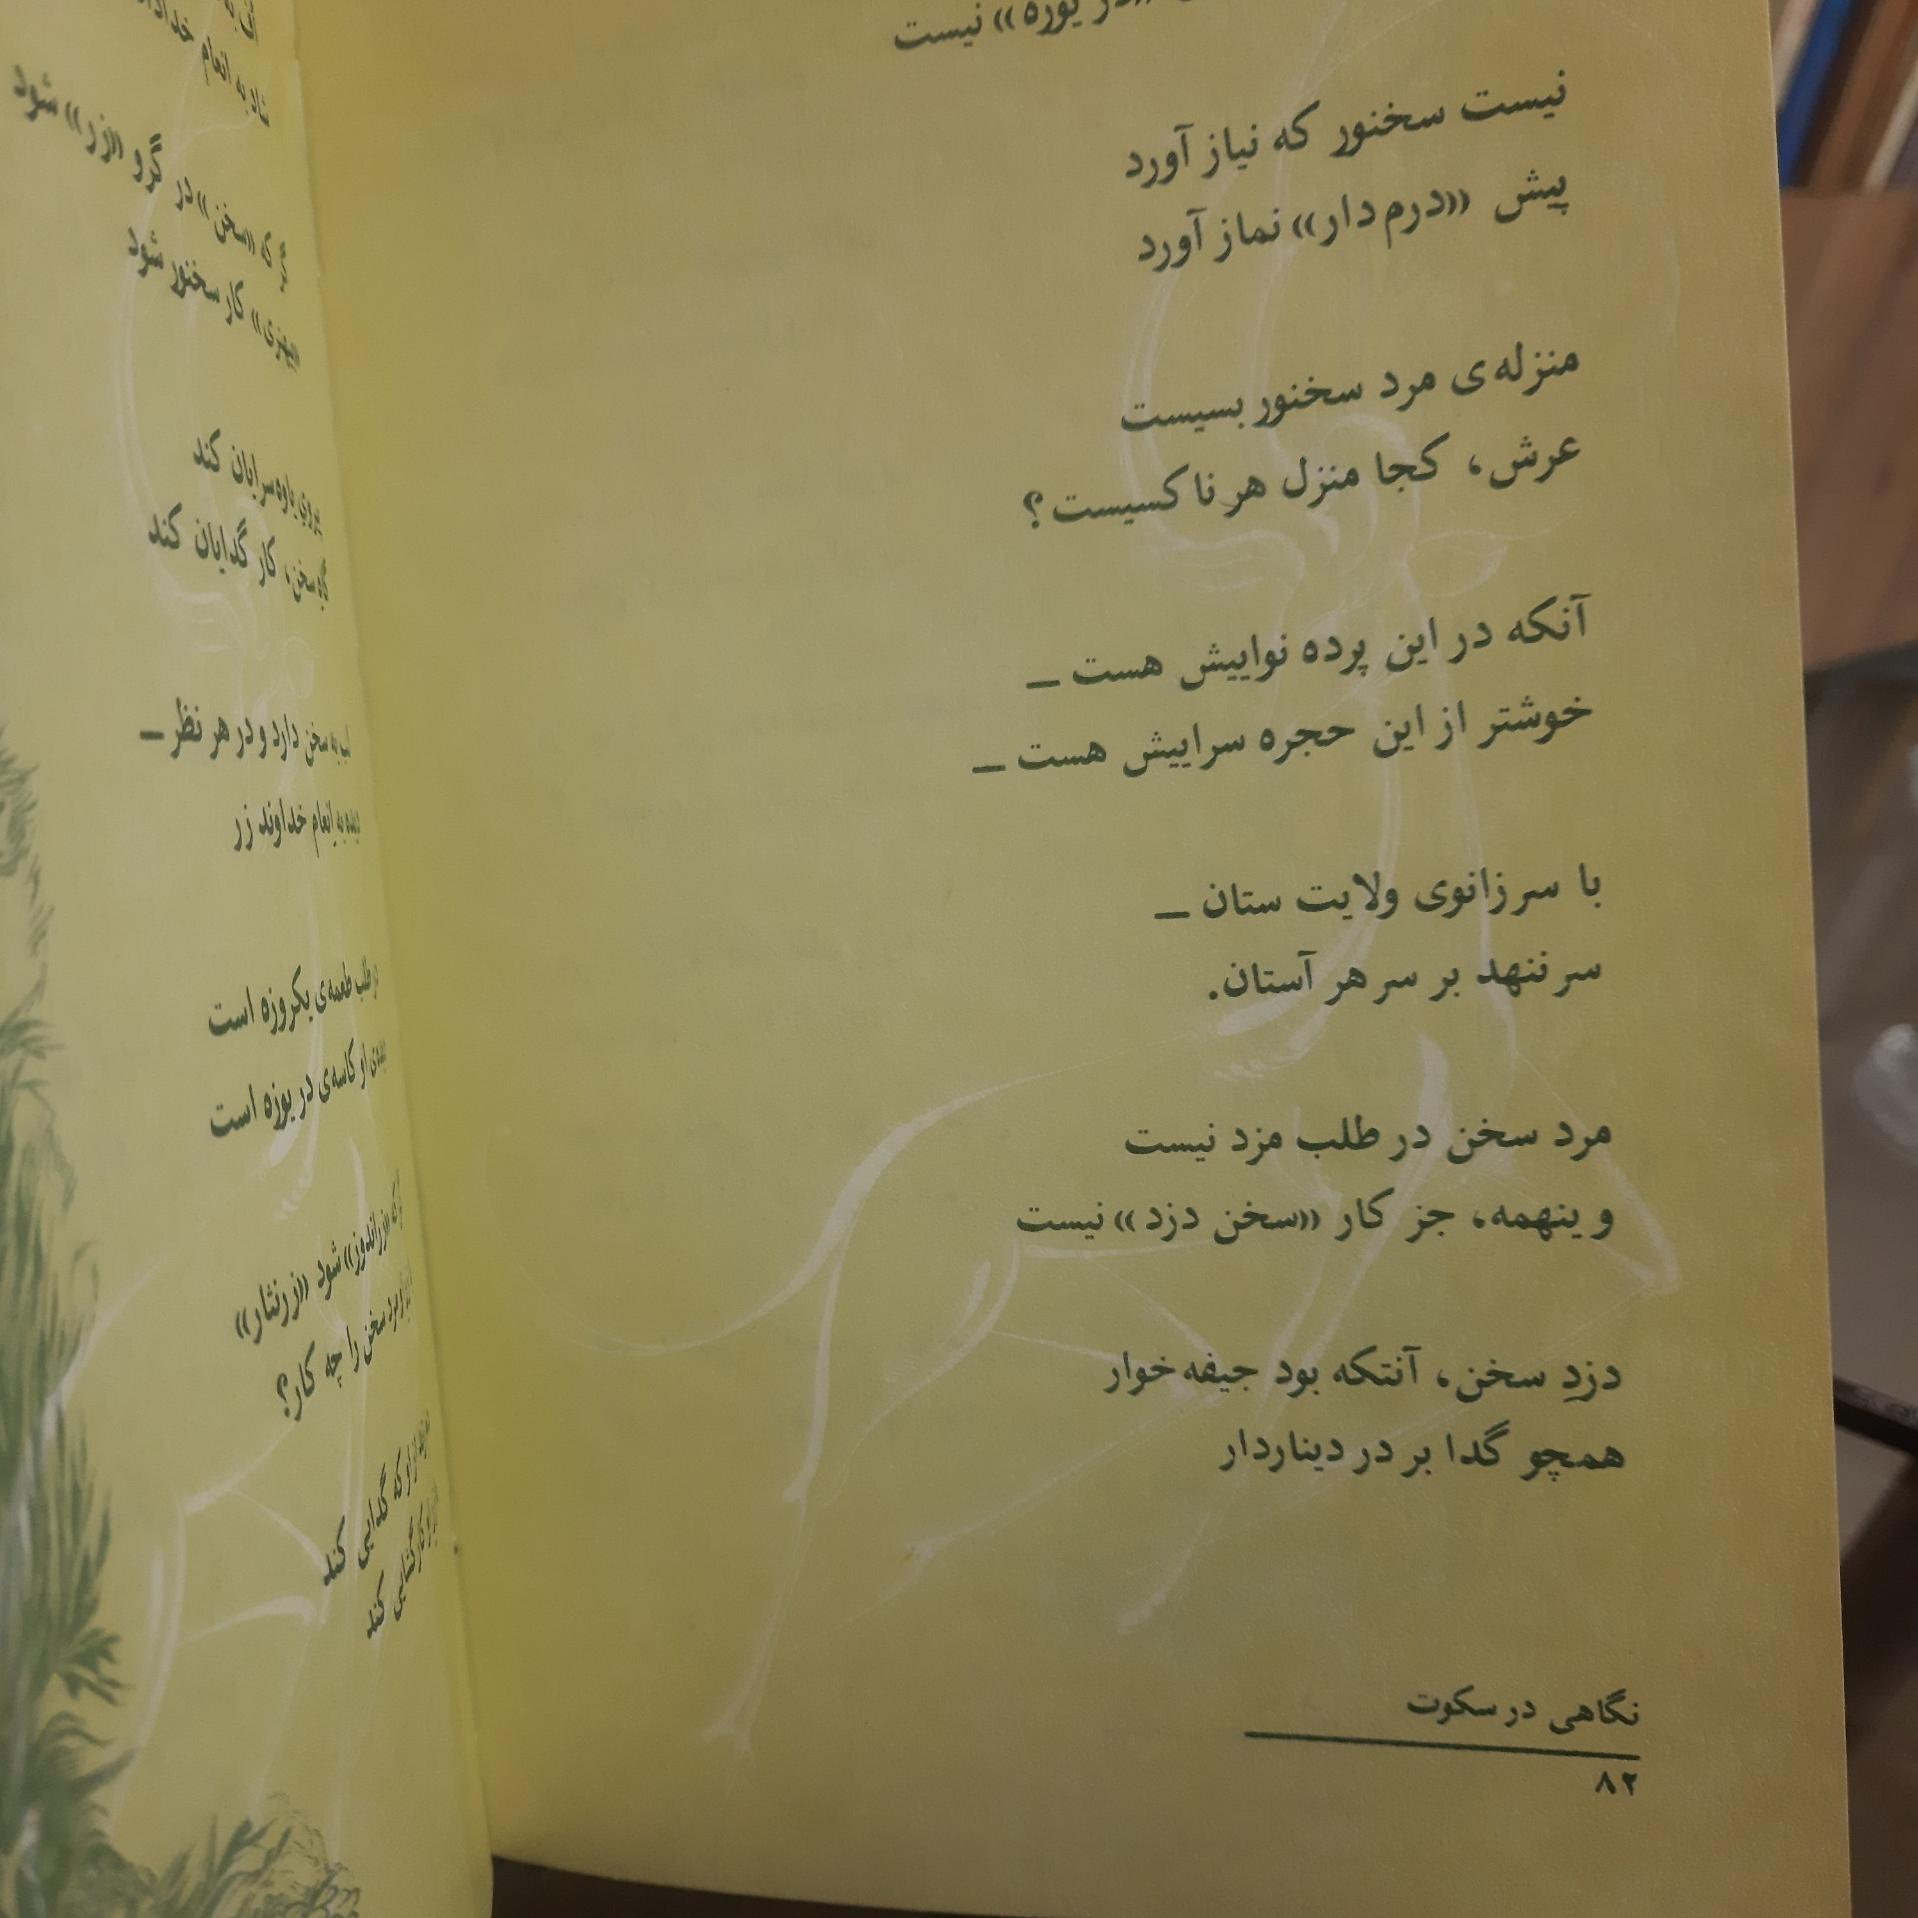 «در یوزه» نیست
نیست سخنور که نیاز آورد
پیش «درم دار» نماز آورد
منزله ی مرد سخنور بسیست
عرش، کجا منزل هر ناکسیست؟
آنکه در این پرده نواییش هست —
خوشتر از این حجره سراییش هست —
با سر زانوی ولایت ستان —
سر ننهد بر سر هر آستان.
مرد سخن در طلب مزد نیست
و ینهمه، جز کار «سخن دزد» نیست
دزدِ سخن، آنتکه بود جیفه خوار
همچو گدا بر در دیناردار
نگاهی در سکوت
۸۲
شاد به انعام
که «سخن» در گرو «زر» شود
کار سخنور شود
پیروی یاوه سرایان کند
گاه سخن، کار گدایان کند
لب به سخن دارد و در هر نظر —
دیده به انعام خداوند زر
در طلب طعمه ی یکروزه است
او کاسه ی در یوزه است
«زراندوز» شود «زرنثار»
مرد سخن را چه کار؟
که گدایی کند
کارگشایی کند